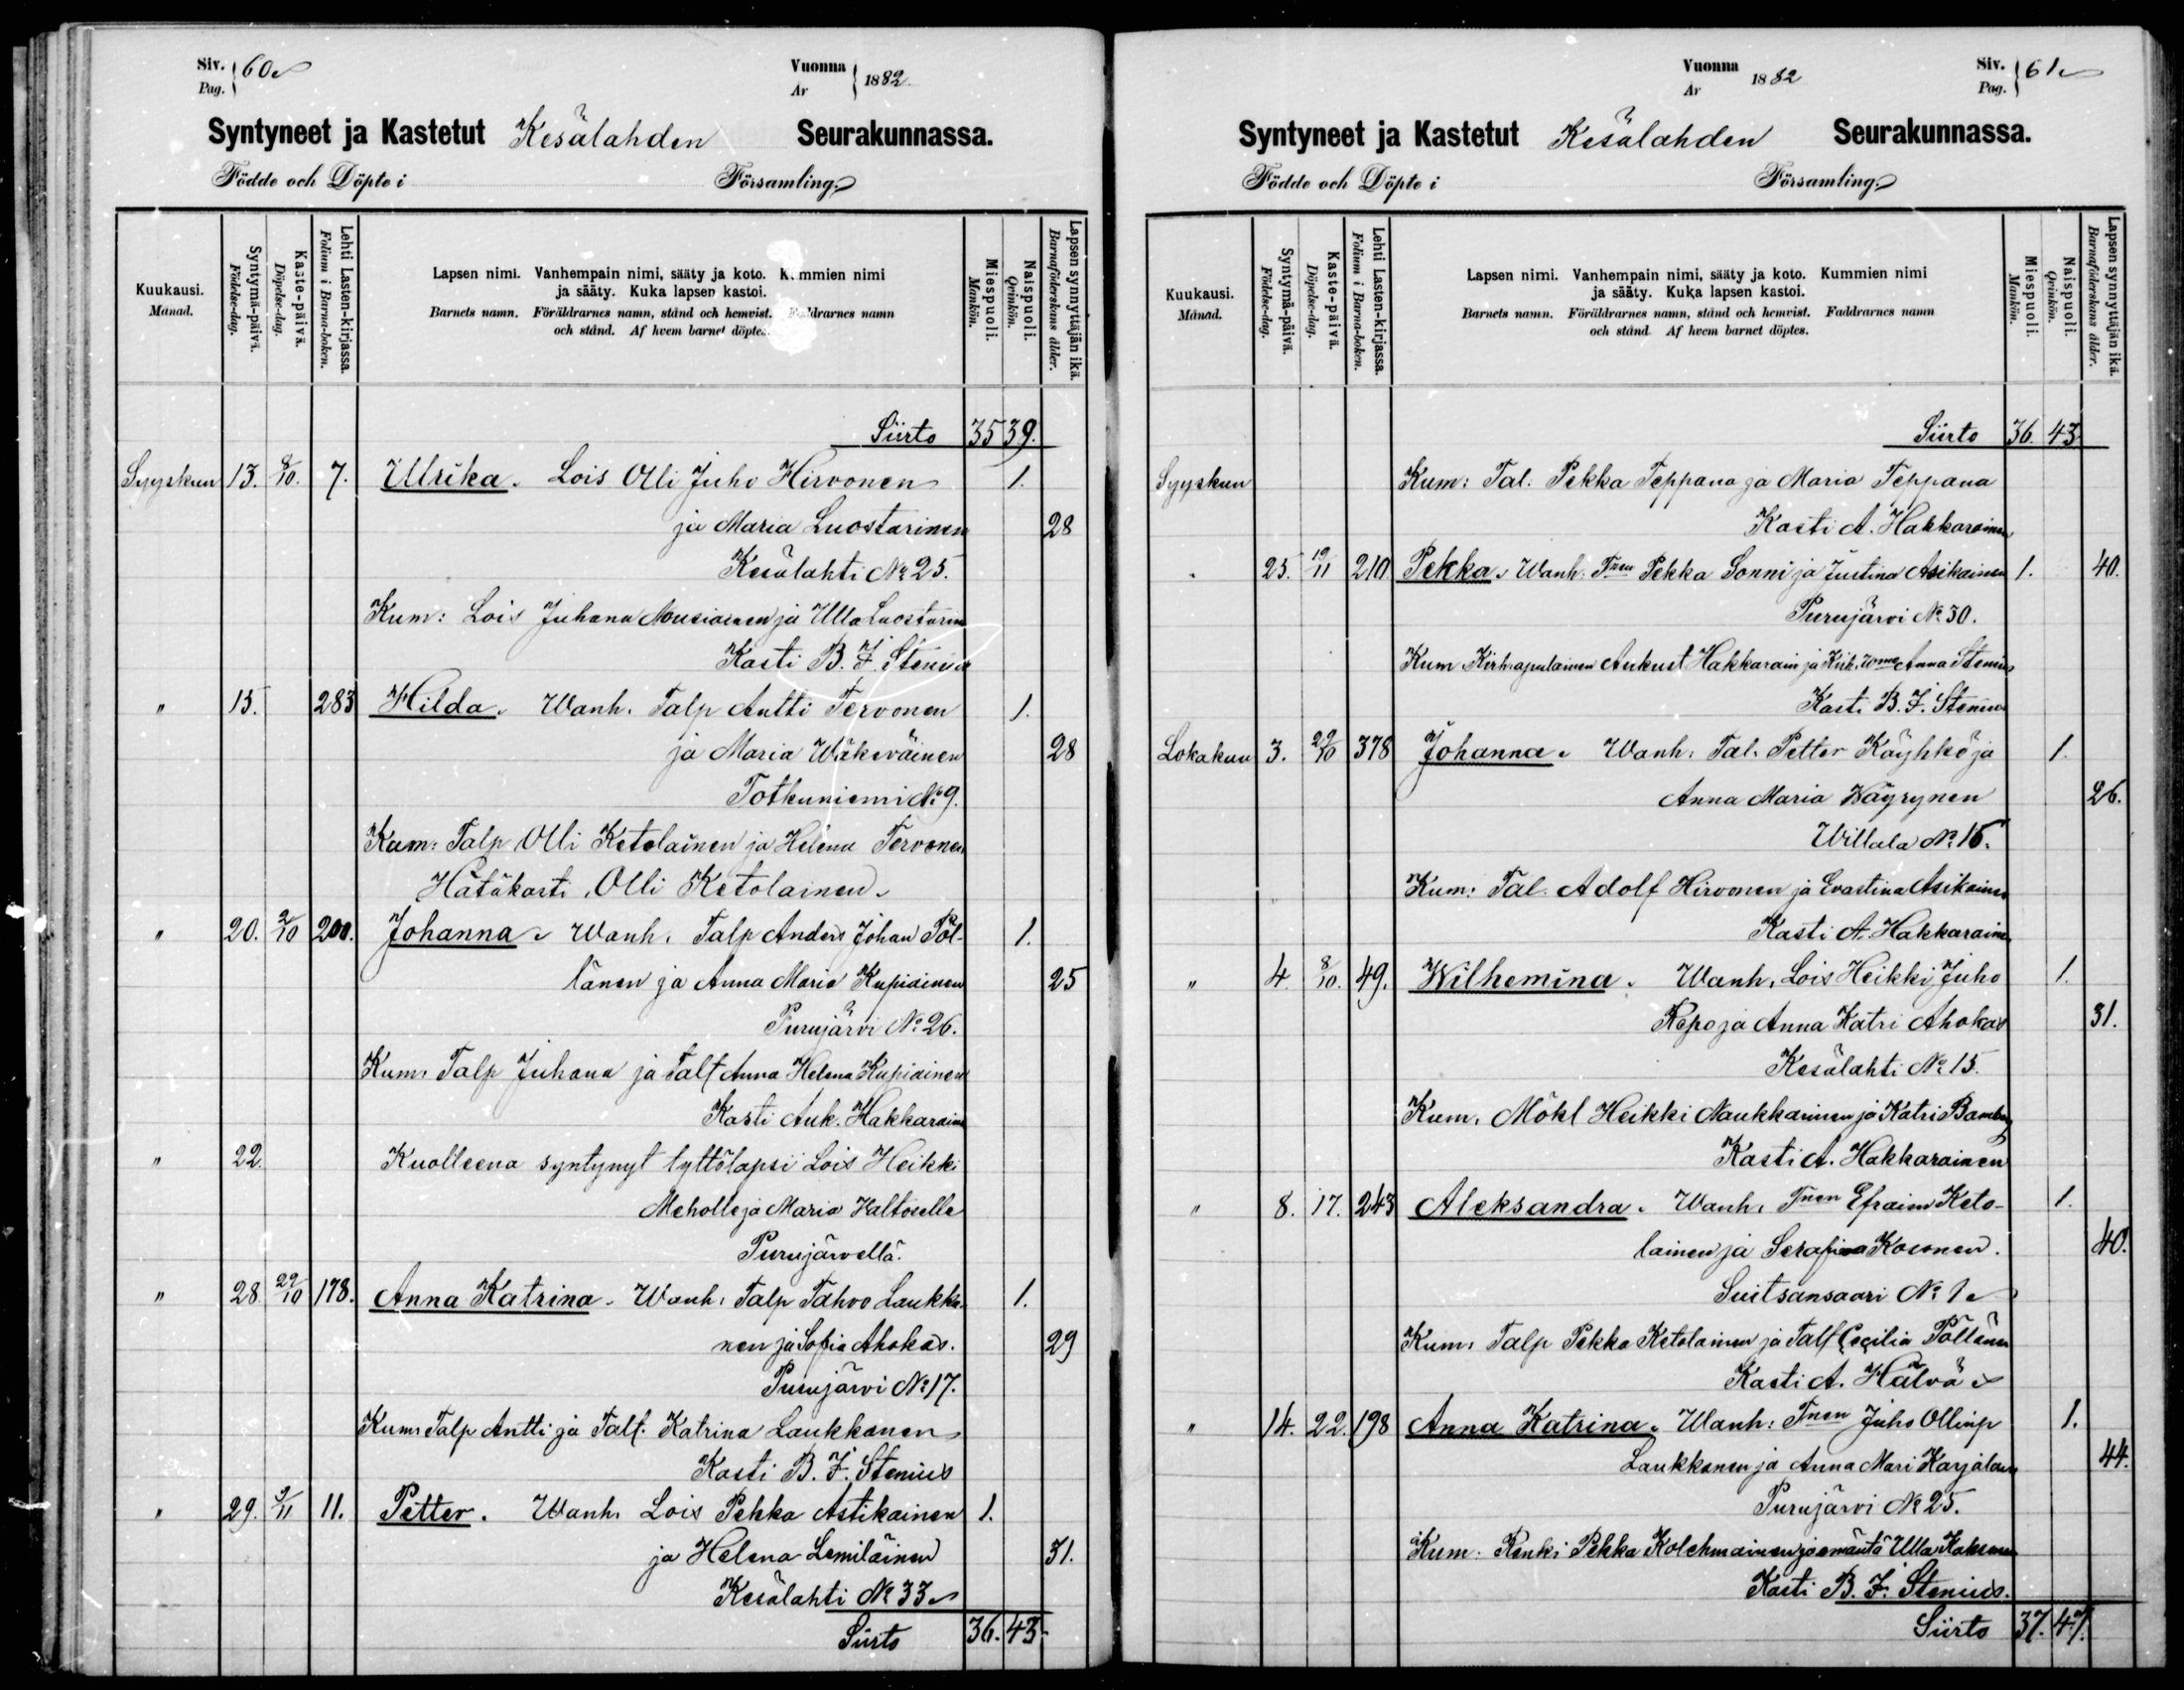 Siv. Pag. 60.
Vuonna År 1882.
Syntyneet ja Kastetut Kesälahden Seurakunnassa.
Födde och Döpte i Församling.
Kuukausi. Månad.
Syntymä-päivä. Födelse-dag.
Kaste-päivä. Döpelse-dag.
Lehti Lasten-kirjassa. Folium i Barna-boken.
Lapsen nimi. Vanhempain nimi, sääty ja koto. K mmien nimi
ja sääty. Kuka lapsen kastoi.
Barnets namn. Föräldrarnes namn, stånd och hemvist. F ddrarnes namn
och stånd. Af hvem barnet döptes.
Miespuoli. Mankön.
Naispuoli. Qvinkön.
Lapsen synnyttäjän ikä. Barnaföderskans ålder.
Siirto 35 39.
Syyskuu 13. 8/10. 7. Ullrika. Lois Olli Juho Hirvonen 1.
ja Maria Luostarinen 28
Kesälahti No 25.
Kum: Lois Juhana Nousiainen ja Ulla Luostarin
Kasti B. F. Stenius
" 15. 283 Hilda. Wanh. Talp Antti Tervonen 1.
ja Maria Wäkeväinen 28
Totkuniemi No 9.
Kum: Talp Olli Ketolainen ja Helena Tervonen
Hätäkasti Olli Ketolainen.
" 20. 2/10 200. Johanna. Wanh. Talp Anders Johan Pöl-
länen ja Anna Maria Kupiainen 25
Purujärvi No 26.
Kum. Talp Juhana ja Talt Anna Helena Kupiainen
Kasti Auk. Hakkarain
" 22. Kuolleena syntynyt tyttölapsi Lois Heikki
Meholle ja Maria Valtoselle
Purujärvellä.
" 28 29/10 178. Anna Katrina. Wanh. Talp Tahvo Laukka- 1.
nen ja Sofia Ahokas. 29
Purujärvi No 17.
Kum: Talp Antti ja Talt. Katrina Laukkanen
Kasti B. F. Stenius
" 29. 5/11 11. Petter. Wanh. Lois Pekka Astikainen 1.
ja Helena Lemiläinen 31.
Kesälahti No 33.
Siirto 36. 43.
Vuonna År 1882
Siv. Pag. 61.
Syntyneet ja Kastetut Kesälahden Seurakunnassa.
Födde och Döpte i Församling.
Kuukausi. Månad.
Syntymä-päivä. Födelse-dag.
Kaste-päivä. Döpelse-dag.
Lehti Lasten-kirjassa. Folium i Barna-boken.
Lapsen nimi. Vanhempain nimi, sääty ja koto. Kummien nimi
ja sääty. Kuka lapsen kastoi.
Barnets namn. Föräldrarnes namn, stånd och hemvist. Faddrarnes namn
och stånd. Af hvem barnet döptes.
Miespuoli. Mankön.
Naispuoli. Qvinkön.
Lapsen synnyttäjän ikä. Barnaföderskans ålder.
Siirto 36. 43.
Syyskuu Kum: Tal. Pekka Teppana ja Maria Teppana
Kasti A. Hakkarainen
" 25. 19/11 210 Pekka. Wanh. Pekka Sonni ja Justina Asikainen 1. 40.
Purujärvi No 30.
Kum Kirk.apulainen Aukust Hakkarain ja Anna Stenius
Kasti B. F. Stenius
Lokakuu 3. 29/10 378 Johanna. Wanh. Tal. Petter Käyhkö ja 1.
Anna Maria Wäyrynen 26.
Willala No 16.
Kum: Tal. Adolf Hirvonen ja Evastina Asikainen
Kasti A. Hakkarainen
" 4 8/10. 49. Wilhemina. Wanh. Lois Heikki Juho 1.
Repo ja Anna Katri Ahokas 31.
Kesälahti No 15.
Kum. Mökl Heikki Naukkarinen ja Katri Bamberg
Kasti A. Hakkarainen
" 8. 17. 243 Aleksandra. Wanh. Tnen Efraim Keto- 1.
lainen ja Serafina Kosonen. 40.
Suitsansaari No 1.
Kum. Talp Pekka Ketolainen ja Talt Cecilia Pöllänen
Kasti A. Hälvä
" 14. 22. 198 Anna Katrina. Wanh: Tnen Juho Ollinp 1.
Laukkanen ja Anna Mari Karjalain 44.
Purujärvi No 25.
Kum: Renki Pekka Kolehmainen ja emäntä Ulla
Kasti B. F. Stenius.
Siirto 37. 47.